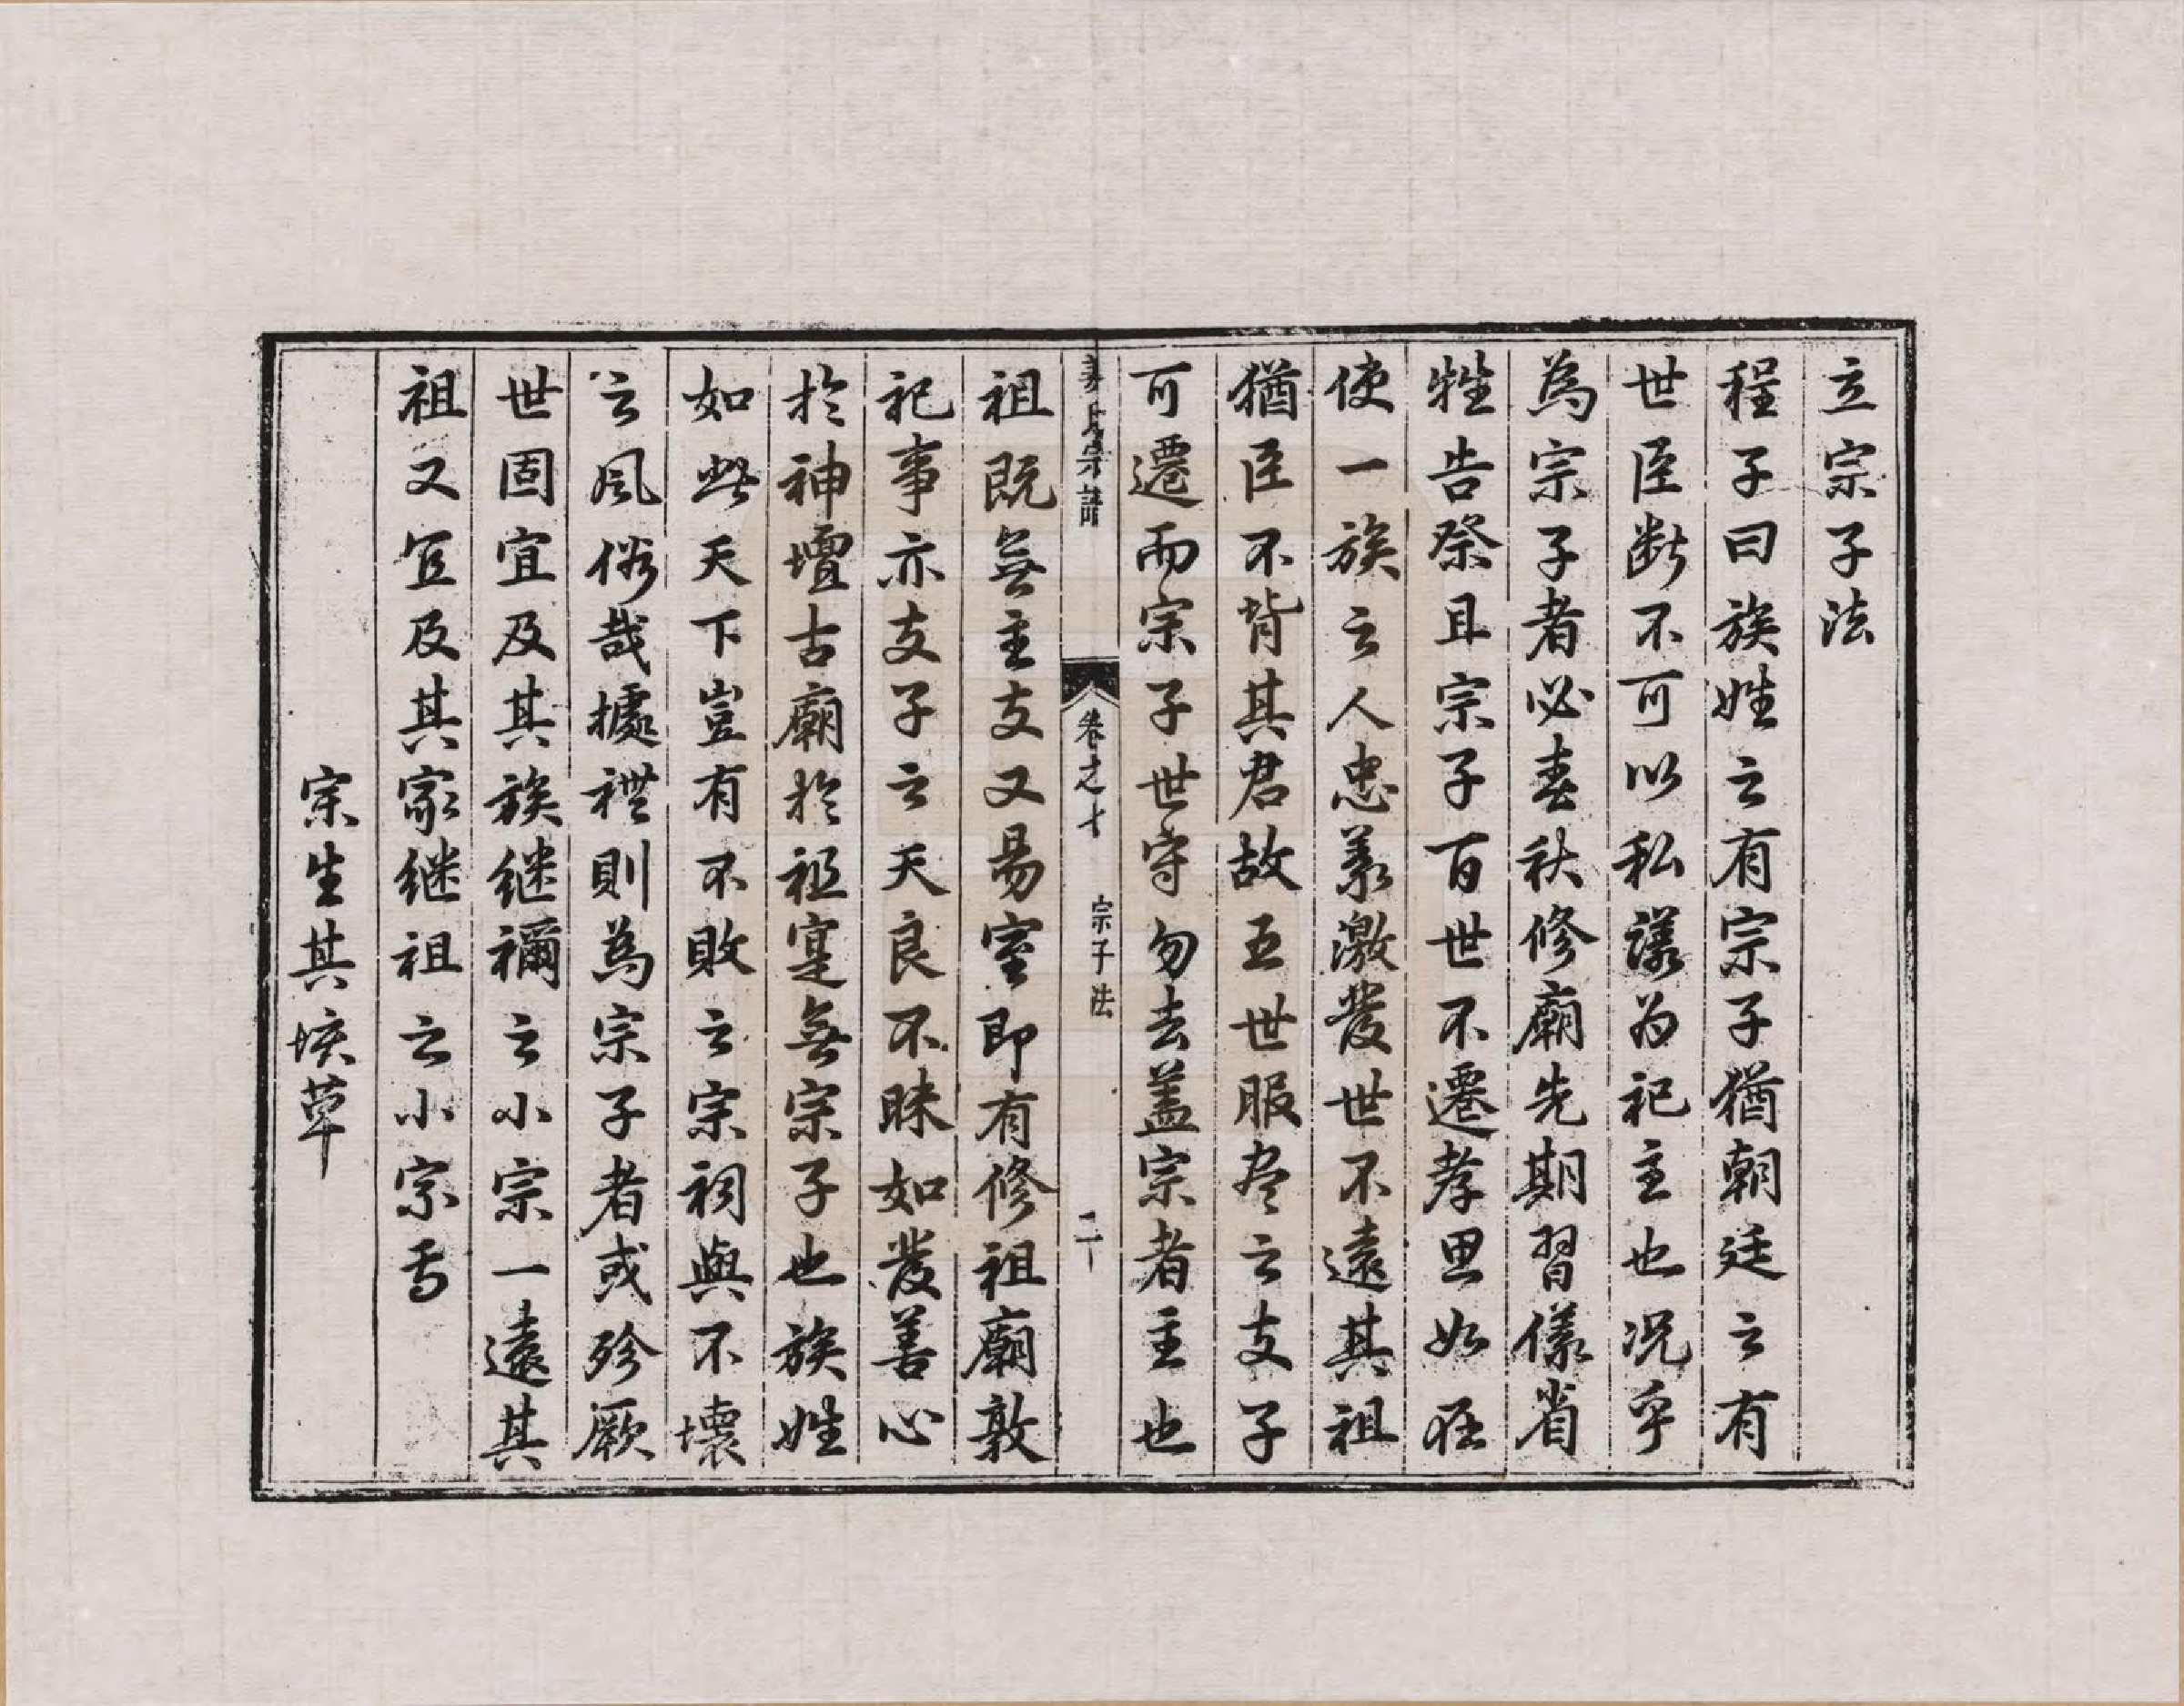 立宗子法
程子曰族姓之有宗子猶朝廷之有
世臣断不可以私議為祀主也况乎
為宗子者必春秋修廟先期習儀省
牲告祭且宗子百世不遷孝思如在
使一族之人忠義激發世不遠其祖
猶臣不背其君故五世服尽之支子
可遷而宗子世守勿去盖宗者主也
姜氏宗譜 卷之才 宗子法 二
祖既無主支又易室即有修祖廟敦
祀事亦支子之天良不昧如發善心
於神壇古廟於祖寔無宗子也族姓
如此天下豈有不敗之宗祠與不壞
之風俗哉據禮則為宗子者或殄厥
世固宜及其族继禰之小宗一遠其
祖又宜及其家继祖之小宗焉
宗生其焌草